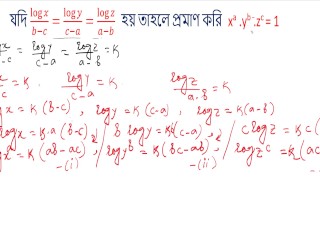 যদি logx/b−c = logy/c−a = logz/a−b হয় তাহলে প্রমাণ করি xᵃ.yᵇ.zᶜ = 1
x/−c = K . logy/c−a = K logz/a−b = K
ogx = K (b-c) , logy = K (c-a) , logz = K (a-b)
logx = K.a (b-c) / b logy = Kb (c-a) / c logz = K c (
logxᵃ = K (ab-ac) , logyᵇ = K (bc-ab) , logzᶜ = K (ac
-(i) -(ii)